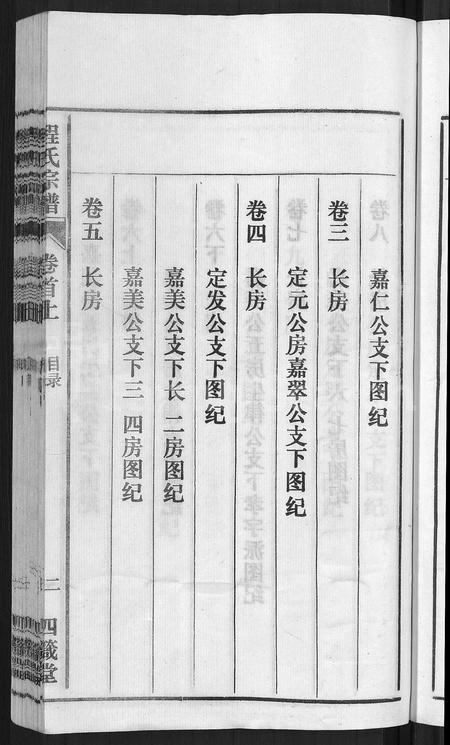 嘉仁公支下图纪
卷三 长房
定元公房嘉翠公支下图纪
卷四 长房
定发公支下图纪
嘉美公支下长 二房图纪
嘉美公支下三 四房图纪
卷五 长房
程氏宗谱 卷首上 目录 二 四箴堂